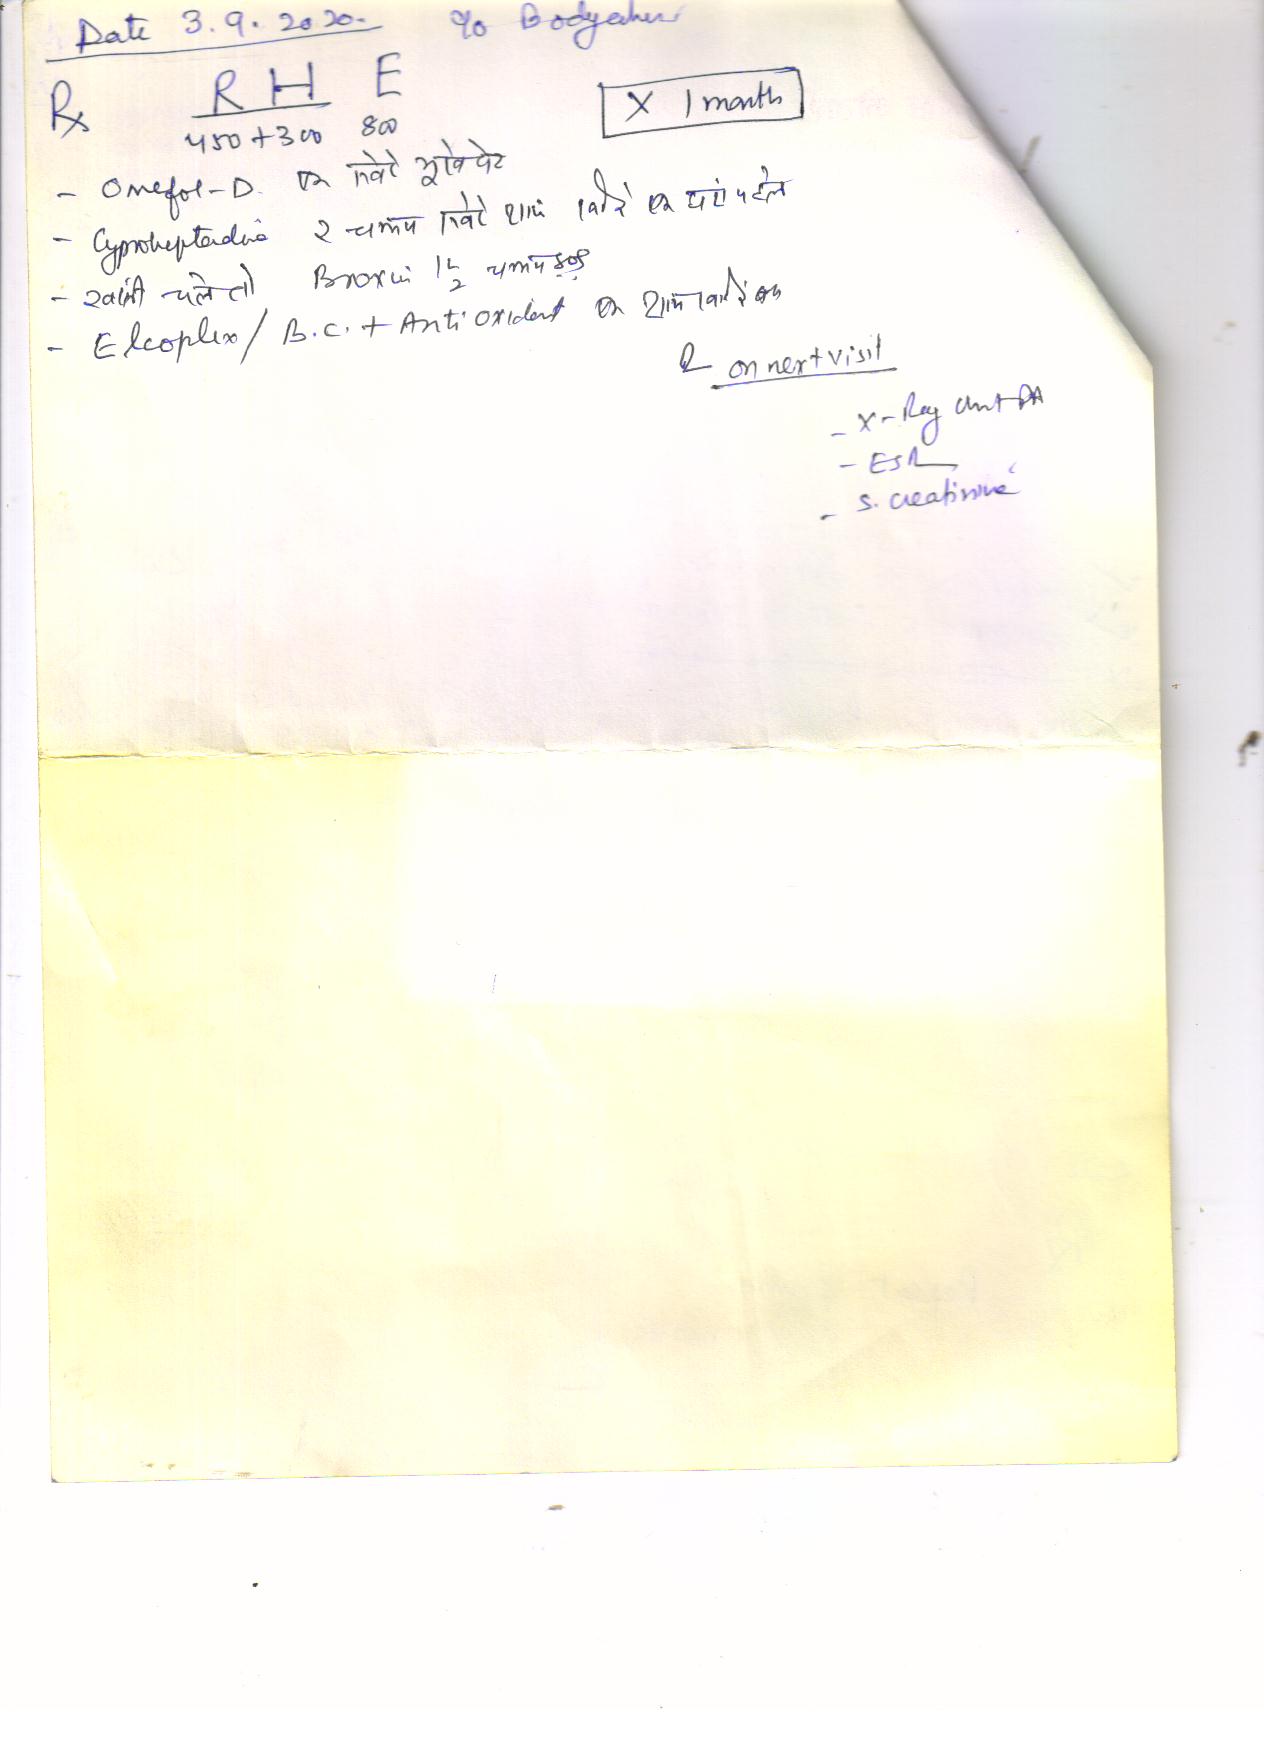 Date 3.9.2020. % Bodyaches
Rx R H E
450+300 800
X 1 month
- Omefol-D. एक सवेरे भूखे पेट
- Cyproheptadine 2 चम्मच सवेरे शाम खाने के एक घंटा पहले
- खांसी चले तो Broxin 1½ चम्मच
- Elcoplex / B.C. + Antioxidant एक शाम खाने के बाद
on next visit
- X-Ray Chest PA
- ESR
- S. creatinine